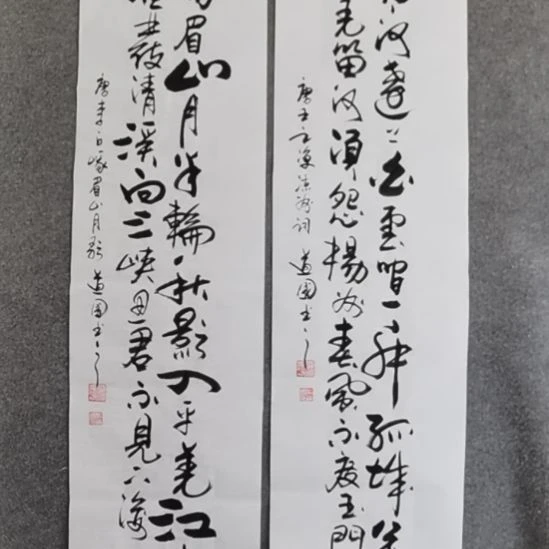 河遠上白雲間一片孤城萬
羌笛何須怨楊柳春風不度玉門
唐王之渙涼州詞 道國書
眉山月半輪秋影入平羌江
發清溪向三峽思君不見下渝
唐李白峨眉山月歌 道國書